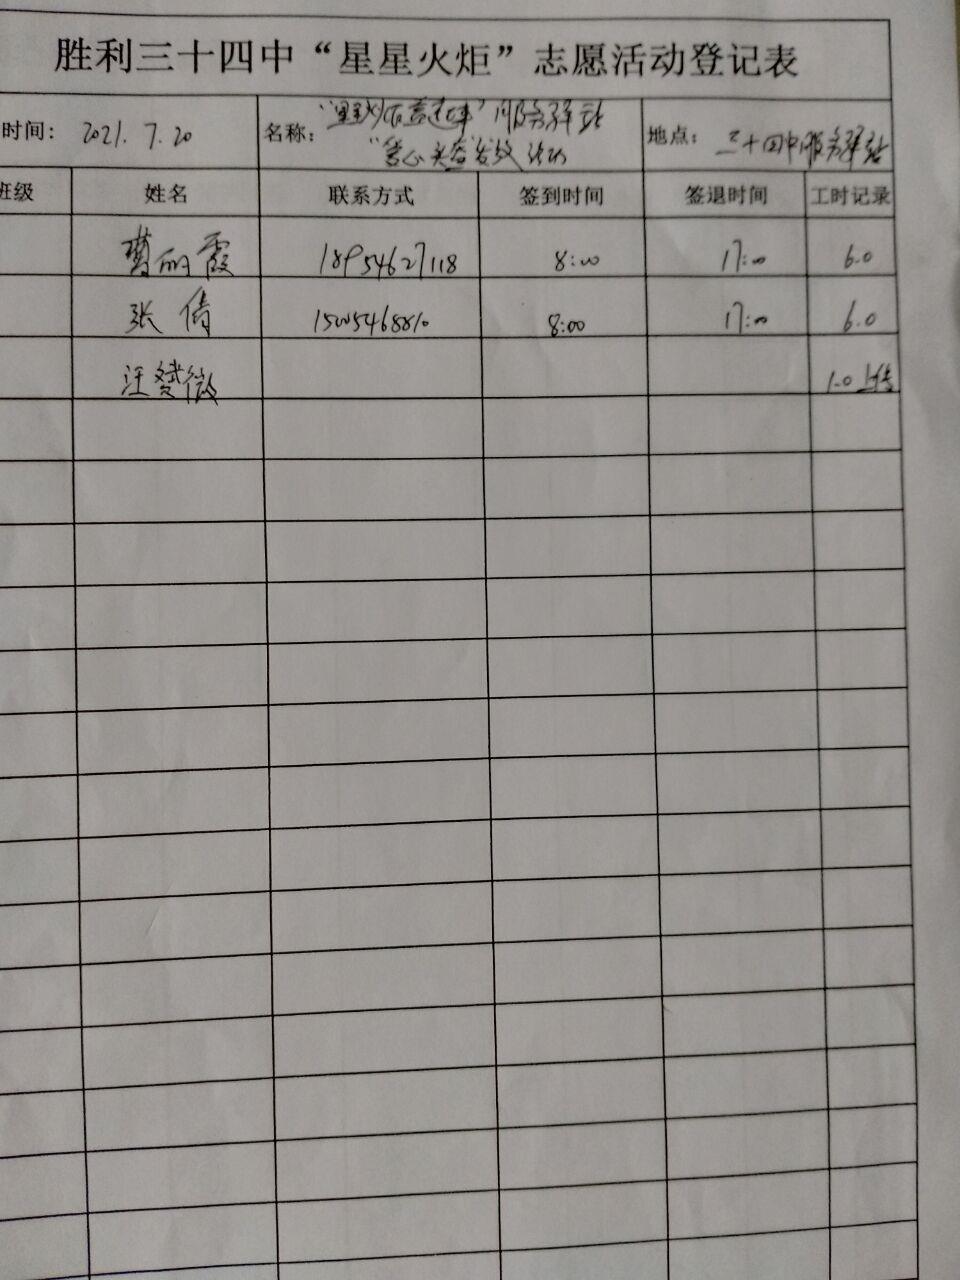 胜利三十四中“星星火炬”志愿活动登记表
时间： 2021. 7. 20 名称： 服务驿站 地点： 三十四中服务驿站
"爱心 发放 活动
班级 姓名 联系方式 签到时间 签退时间 工时记录
丽霞 18954627118 8:00 17:00 6.0
张倩 15005468810 8:00 17:00 6.0
汪 薇 1.0 上传